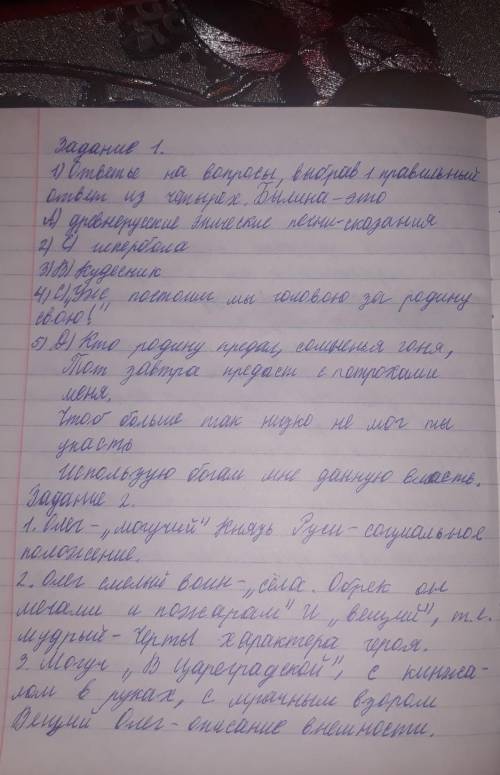 Задание 1.
1) Ответье на вопросы, выбрав 1 правильный
ответ из четырех. Былина - это
А) древнерусские эпические песни-сказания
2) С) гипербола
3) В) Кудесник
4) С) "Уж постоим мы головою за родину
свою!"
5) D) Кто родину предал, сомненья гоня,
Тот завтра предаст с потрохами
меня.
Чтоб больше так низко не мог ты
упасть
Использую богам мне данную власть.
Задание 2.
1. Олег - "могучий" Князь Руси - социальное
положение.
2. Олег смелый воин - "сёла. Обрек он
мечами и пожарам" И "вещий", т.е.
мудрый - Черты характера героя.
3. Могуч "В цареградской", с кинжа-
лом в руках, с мрачным взором
Вещий Олег - описание внешности.